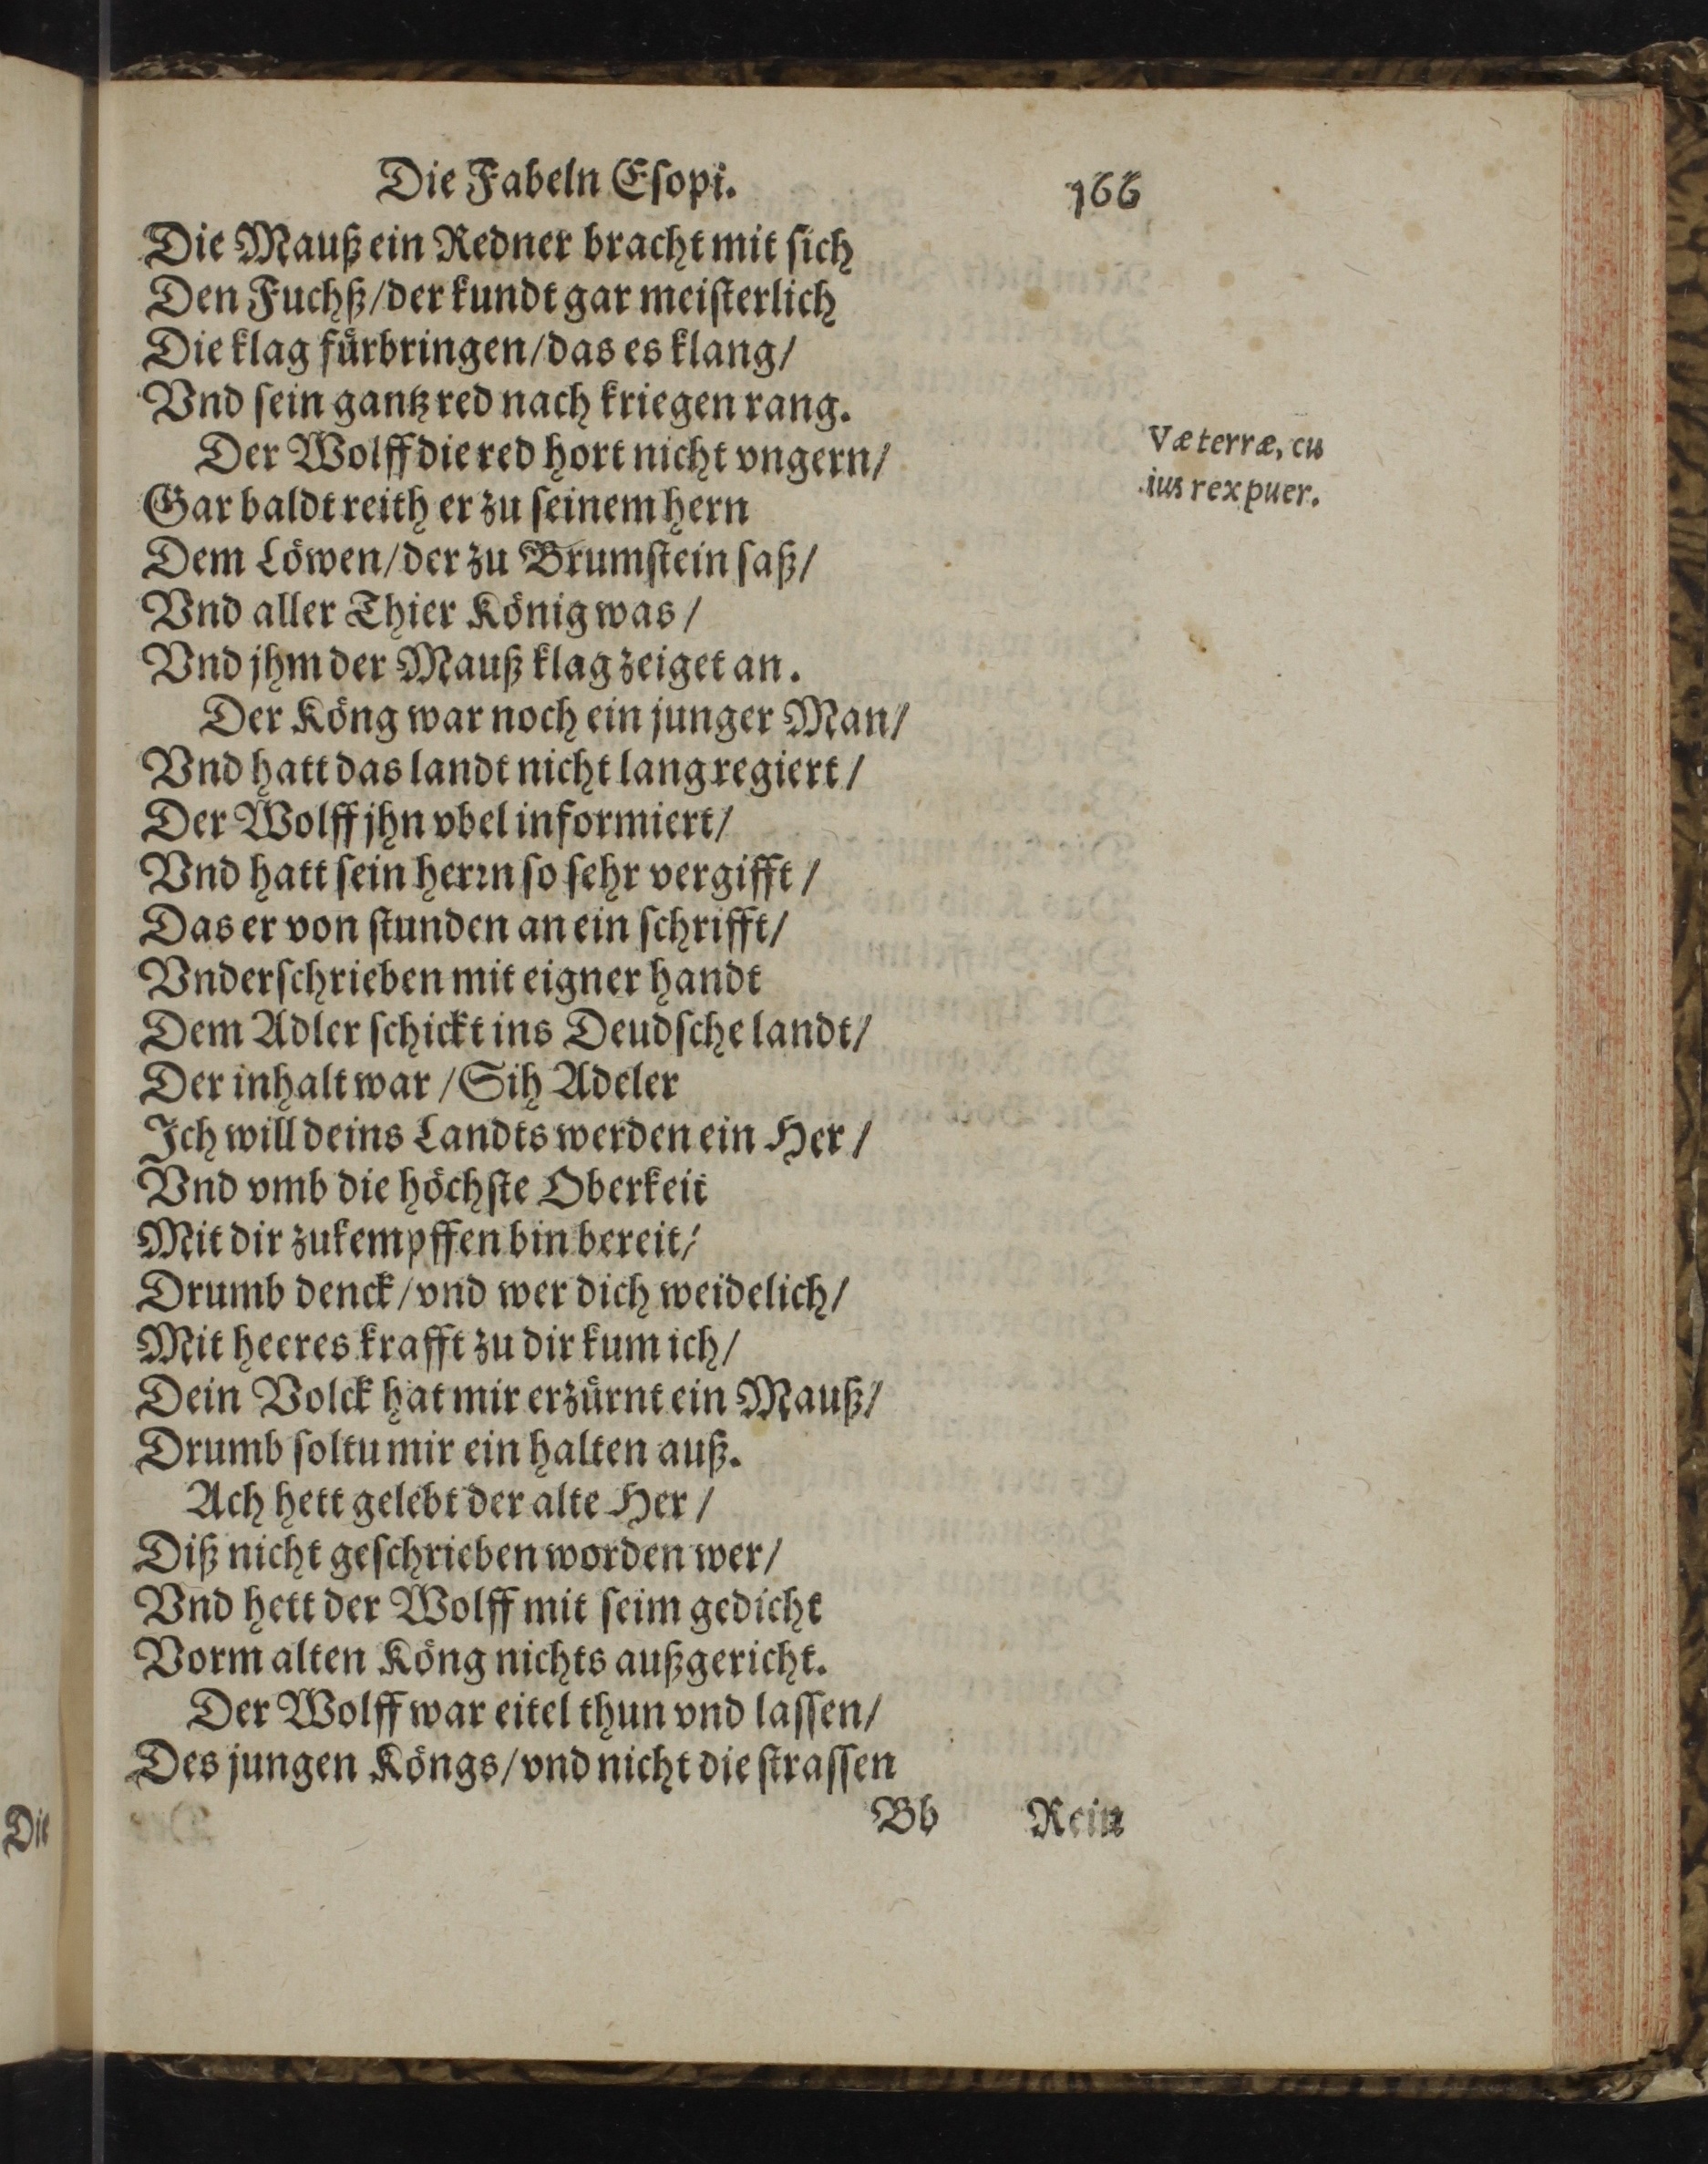 Die Fabeln Eſopi. 166
Die Mauß ein Redner bracht mit ſich
Den Fuchß/der kundt gar meiſterlich
Die klag fürbringen/das es klang/
Vnd ſein gantz red nach kriegen rang.
Der Wolff die red hort nicht vngern/
Væ terræ, cu
Gar baldt reith er zu ſeinem hern
ius rex puer.
Dem Löwen/der zu Brumſtein ſaß/
Vnd aller Thier König was/
Vnd jhm der Mauß klag zeiget an.
Der Köng war noch ein junger Man/
Vnd hatt das landt nicht lang regiert/
Der Wolff jhn vbel informiert/
Vnd hatt ſein herꝛn ſo ſehr vergifft/
Das er von ſtunden an ein ſchrifft/
Vnderſchrieben mit eigner handt
Dem Adler ſchickt ins Deudſche landt/
Der inhalt war/Sih Adeler
Ich will deins Landts werden ein Her/
Vnd vmb die höchſte Oberkeit
Mit dir zukempffen bin bereit/
Drumb denck/vnd wer dich weidelich/
Mit heeres krafft zu dir kum ich/
Dein Volck hat mir erzürnt ein Mauß/
Drumb ſoltu mir ein halten auß.
Ach hett gelebt der alte Her/
Diß nicht geſchrieben worden wer/
Vnd hett der Wolff mit ſeim gedicht
Vorm alten Köng nichts außgericht.
Der Wolff war eitel thun vnd laſſen/
Des jungen Köngs/vnd nicht die ſtraſſen
Bb Rein
Die